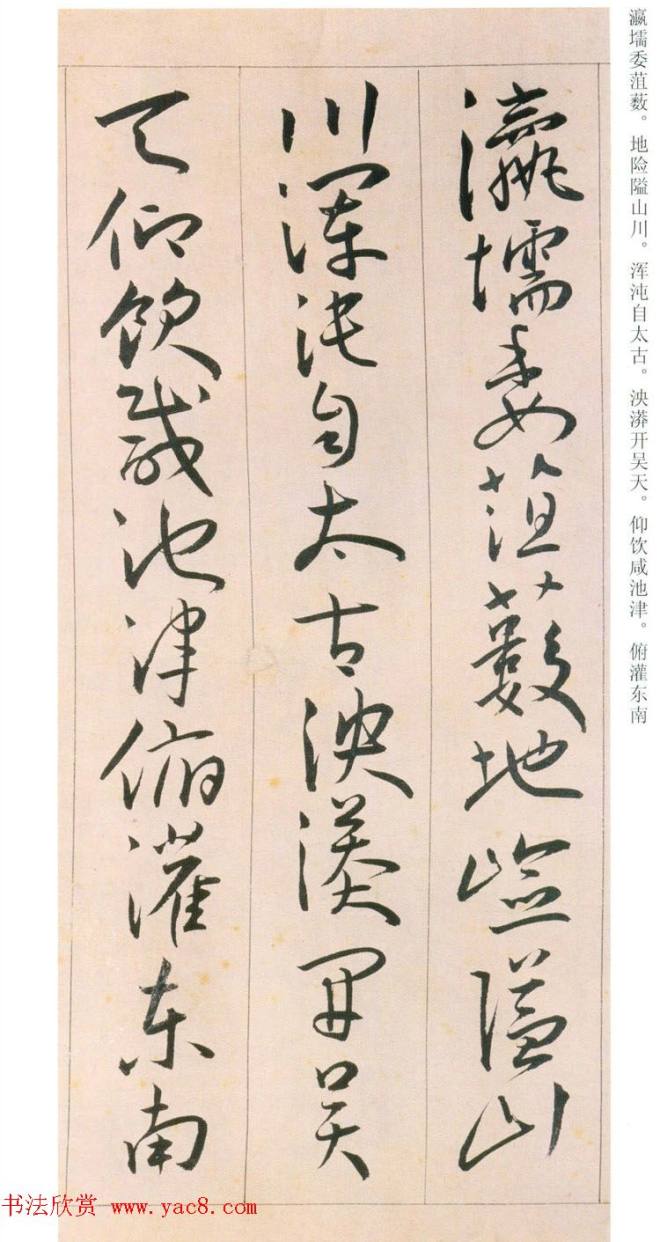 瀛壖委菹薮。地险隘山川。浑沌自太古。泱漭开吴天。仰饮咸池津。俯灌东南
瀛壖委菹薮地崄隘山
川浑沌自太古泱漭开吴
天仰饮咸池津俯灌东南
书法欣赏 www.yac8.com